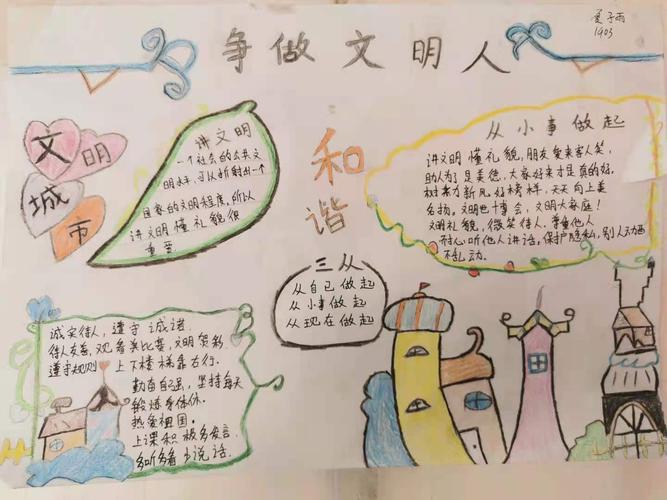 子雨
1903
争做文明人
文明
城市
讲文明
一个社会的公共文
明水平,可以折射出一个
国家的文明程度,所以
讲文明懂礼貌很
重要
和
谐
三从
从自己做起
从小事做起
从现在做起
从小事做起
讲文明 懂礼貌,朋友爱来客人笑,
助人为了是美德,大家好来才是真的好。
新风好榜样,天天向上美
名扬。文明也十博会,文明大家庭!
文明礼貌,微笑待人。尊重他人
开心听他人讲话,保护隐私,别人
不乱动。
诚实待人,遵守诚诺.
待人友善,观看类比赛,文明贺彩,
遵守规则 上下楼梯靠右行.
勤奋自强,坚持每天
锻炼身体
热爱祖国.
上课积极多发言.
多听多看少说话.